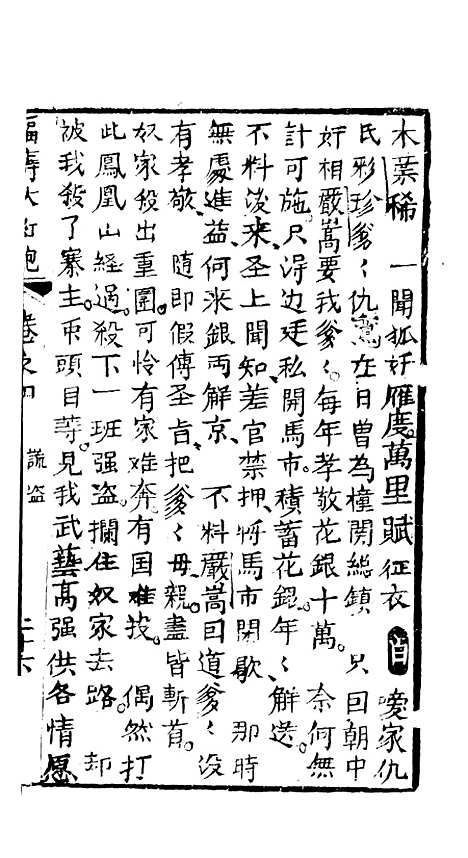 木葉稀 一聞孤奸雁度萬里賦征衣 白 噯家仇
氏邪珍爹〻仇鸞在日曾為橦関総鎮 只因朝中
奸相嚴嵩要我爹〻每年孝敬花銀十萬 奈何無
計可施只淂边廷私開馬市積蓄花銀年〻解送
不料後來圣上聞知差官禁押将馬市閉歇 那時
無處進益何来銀両解京 不料嚴嵩囙道爹〻没
有孝敬 随即假傳圣旨把爹〻母親盡皆斬首
奴家殺出重圍可怜有家难奔有国难投 偶然打
此鳳凰山經過殺下一班强盗攔住奴家去路 却
被我殺了寨主帀頭目等見我武藝高强供各情愿
福壽大紅袍 卷之四 謊盗 二十六